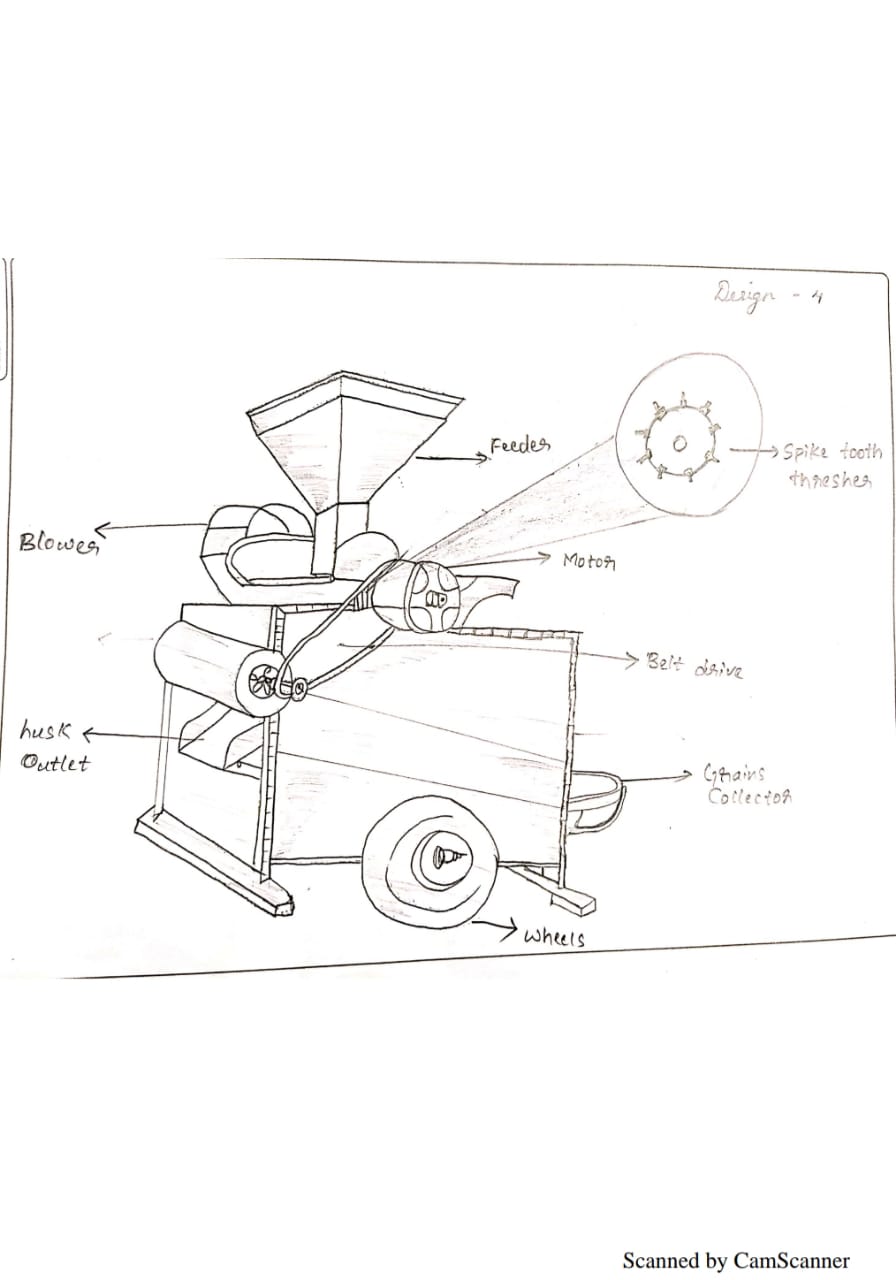 Design - 4
Feeder
Spike tooth
thresher
Blower
Motor
Belt drive
husk
Outlet
Grains
Collector
Wheels
Scanned by CamScanner